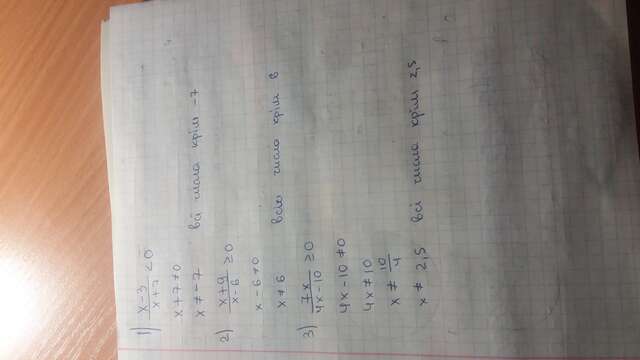 1) x-3/x+7 < 0
x+7≠0
x≠-7 всі числа крім -7
2) x+9/x-6 ≥0
x-6≠0
x≠6 всіх число крім 6
3) 7x/4x-10 ≥0
4x-10≠0
4x≠10
x≠ 10/4
x≠ 2,5 всі числа крім 2,5